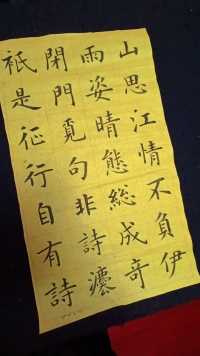 山思江情不負伊
雨姿晴態総成奇
閉門覓句非詩灋
衹是征行自有詩